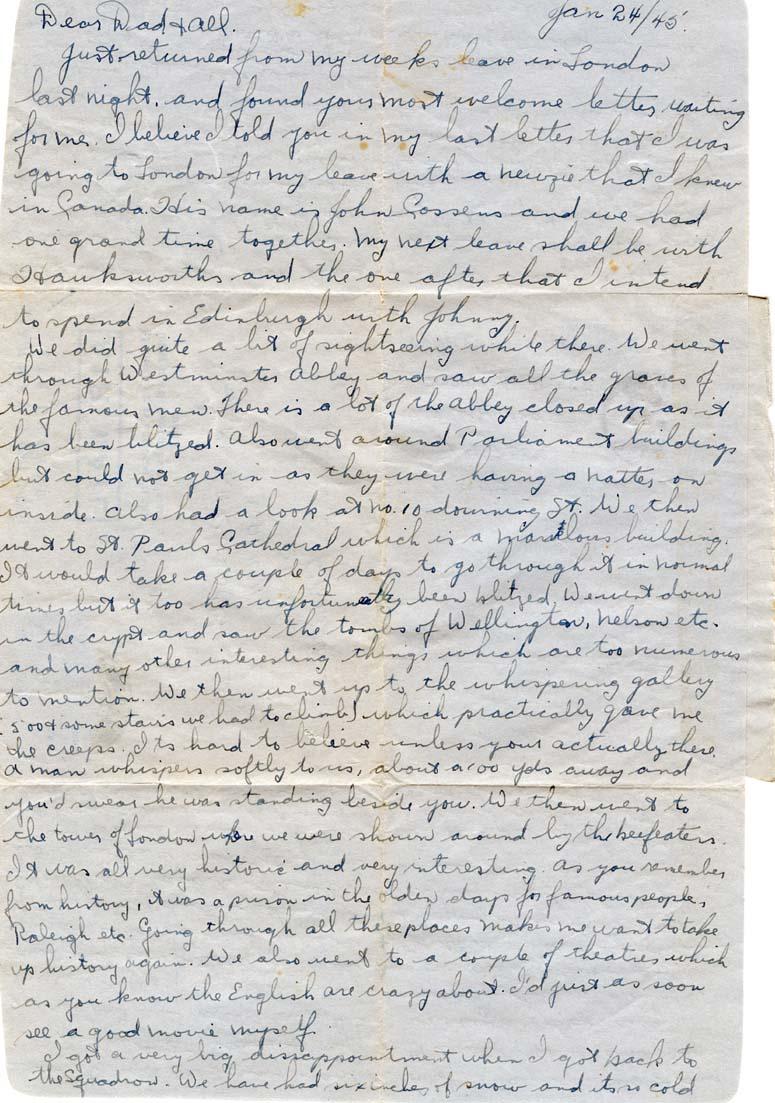 Jan 24/45.
Dear Dad & all.
Just returned from my weeks leave in London
last night, and found yours most welcome letter waiting
for me. I believe I told you in my last letter that I was
going to London for my leave with a newzie that I knew
in Canada. His name is John Gossens and we had
one grand time together. My next leave shall be with
Hawksworths and the one after that I intend
to spend in Edinburgh with Johnny.
We did quite a bit of sightseeing while there. We went
through Westminster Abbey and saw all the graves of
the famous men. There is a lot of the Abbey closed up as it
has been blitzed. Also went around Parliament buildings
but could not get in as they were having a natter on
inside. Also had a look at no. 10 downing St. We then
went to St. Pauls Cathedral which is a marvelous building.
It would take a couple of days to go through it in normal
times but it too has unfortunatly been blitzed. We went down
in the crypt and saw the tombs of Wellington, Nelson etc.
and many other interesting things which are too numerous
to mention. We then went up to the whispering gallery
(500 & some stairs we had to climb) which practically gave me
the creeps. Its hard to believe unless your actually there.
A man whispers softly to us, about a 100 yds away and
you'd swear he was standing beside you. We then went to
the tower of London where we were shown around by the beefeaters.
It was all very historic and very interesting. As you remember
from history, it was a prison in the olden days for famous people,
Raleigh etc. Going through all these places makes me want to take
up history again. We also went to a couple of theatres which
as you know the English are crazy about. I'd just as soon
see a good movie myself.
I got a very big disappointment when I got back to
the Squadron. We have had six inches of snow and its so cold